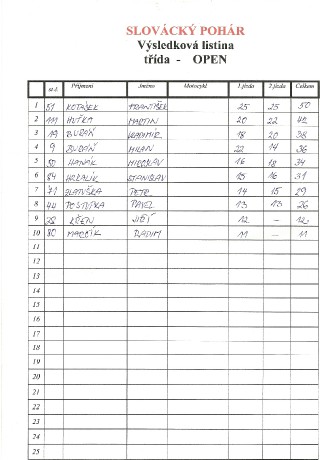 SLOVÁCKÝ POHÁR
Výsledková listina
třída - OPEN
st.č. Příjmení Jméno Motocykl 1.jízda 2.jízda Celkem
1 51 KOTÁSEK FRANTIŠEK 25 25 50
2 111 HUŤKA MARTIN 20 22 42
3 19 VLADIMÍR 18 20 38
4 9 MILAN 22 14 36
5 50 HANÁK MIROSLAV 16 18 34
6 84 STANISLAV 15 16 31
7 71 ZLATUŠKA PETR 14 15 29
8 44 PAVEL 13 13 26
9 JIŘÍ 12 - 12
10 80 RADIM 11 - 11
11
12
13
14
15
16
17
18
19
20
21
22
23
24
25